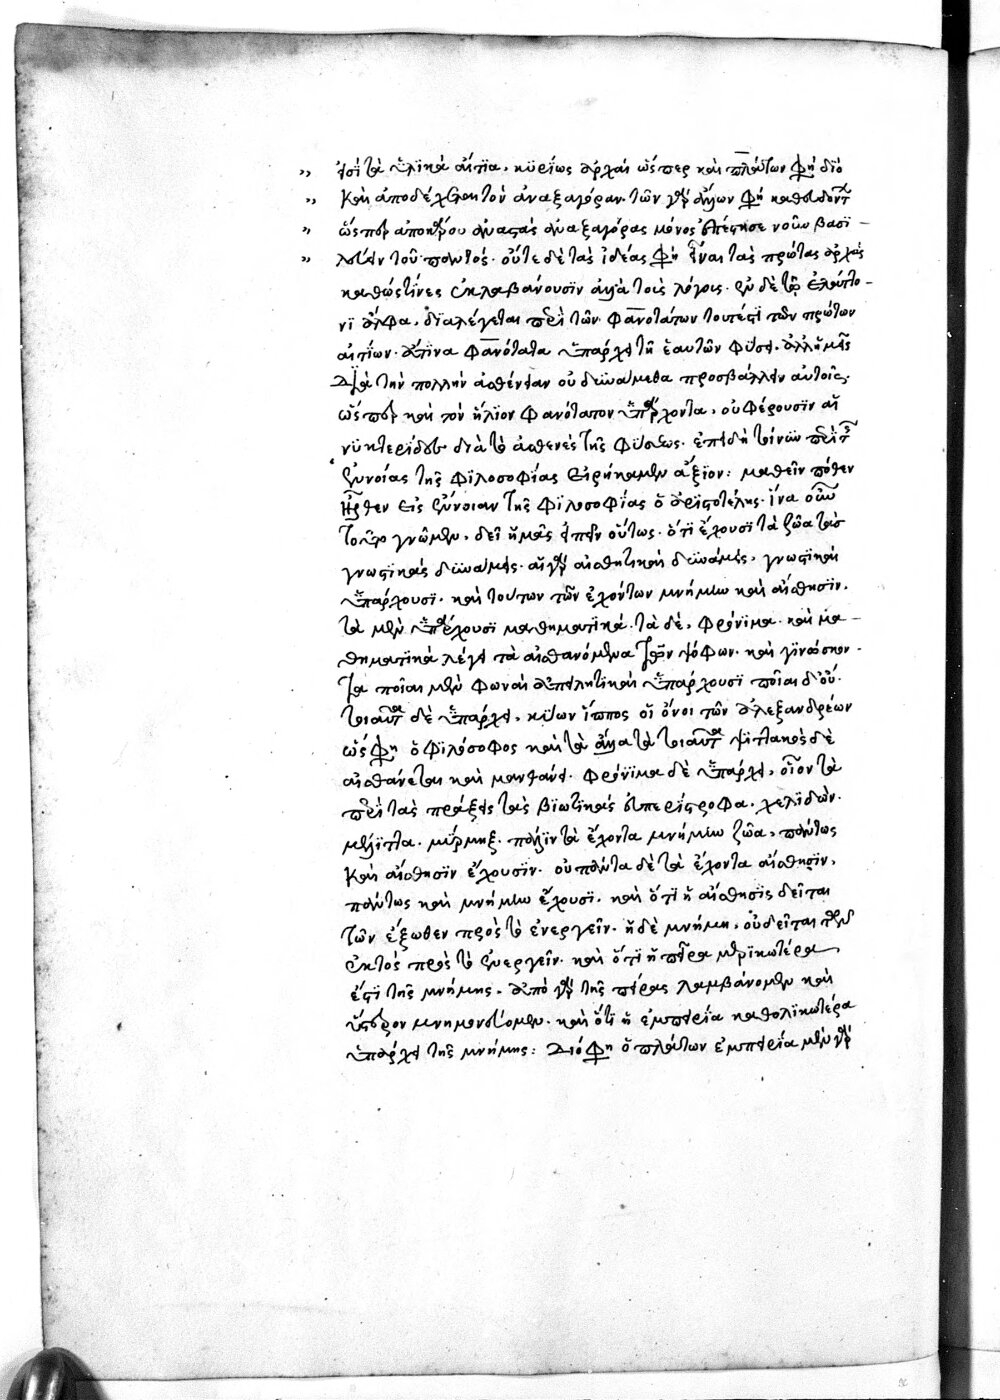 εἰσὶ τὰ ὑλικὰ αἴτια, κυρίως ἀρχαὶ ὥσπερ καὶ πλάτων φησὶ διὸ
καὶ ἀποδέχεται τὸν ἀναξαγόραν. τῶν γὰρ ἄλλων φησὶ καθευδόντων
ὥσπερ ἀπὸ κάρου ἀναστὰς ἀναξαγόρας μόνος ἐπέστησε νοῦν βασι-
λεύειν τοῦ παντός. οὔτε δὲ τὰς ἰδέας φησὶ εἶναι τὰς πρώτας ἀρχὰς
καθώς τινες ἐκλαβάνουσιν ἀλλὰ τοὺς λόγους. ἐν δὲ τῷ ἐλάττο-
νι ἄλφα, διαλέγεται περὶ τῶν φανοτάτων τουτέστι τῶν πρώτων
αἰτίων. ἅτινα φανότατα ὑπάρχει τῇ ἑαυτῶν φύσει. ἀλλ' ἡμεῖς
διὰ τὴν πολλὴν ἀσθένειαν οὐ δυνάμεθα προσβάλλειν αὐτοῖς.
ὥσπερ καὶ τὸν ἥλιον φανότατον ὑπάρχοντα, οὐ φέρουσιν αἱ
νυκτερίδες διὰ τὸ ἀσθενὲς τῆς φύσεως. ἐπειδὴ τίνων περὶ τῆς
ἐννοίας τῆς φιλοσοφίας εἰρήκαμεν ἄξιον: μαθεῖν πόθεν
ἦρθεν εἰς ἔννοιαν τῆς φιλοσοφίας ὁ ἀριστοτέλης. ἵνα οὖν
τοῦτο γνῶμεν, δεῖ ἡμᾶς εἰπεῖν οὕτως. ὅτι ἔχουσι τὰ ζῶα τὰς
γνωστικὰς δυνάμεις. αἱ γὰρ αἰσθητικαὶ δυνάμεις, γνωστικαὶ
ὑπάρχουσι. καὶ τούτων τῶν ἐχόντων μνήμην καὶ αἴσθησιν.
τὰ μὲν ὑπάρχουσι μαθηματικά. τὰ δὲ, φρόνιμα. καὶ μα-
θηματικὰ λέγει τὰ αἰσθανόμενα τῶν ψόφων. καὶ γινώσκον-
τα ποῖαι μὲν φωναὶ ἀπειλητικαὶ ὑπάρχουσι ποῖαι δ' οὔ.
τοιαῦτα δὲ ὑπάρχει, κύων ἵππος οἱ ὄνοι τῶν ἀλεξανδρέων
ὥς φησὶ ὁ φιλόσοφος καὶ τὰ ἄλλα τὰ τοιαῦτα ψιττακὸς δὲ
αἰσθάνεται καὶ μανθάνει. φρόνιμα δὲ ὑπάρχει, οἷον τὰ
περὶ τὰς πράξεις τὰς βιωτικὰς εὐπερίστροφα. χελιδὼν.
μέλιττα. μύρμηξ. πάλιν τὰ ἔχοντα μνήμην ζῶα, πάντως
καὶ αἴσθησιν ἔχουσιν. οὐ πάντα δὲ τὰ ἔχοντα αἴσθησιν,
πάντως καὶ μνήμην ἔχουσι. καὶ ὅτι ἡ αἴσθησις δεῖται
τῶν ἔξωθεν πρὸς τὸ ἐνεργεῖν. ἡ δὲ μνήμη, οὐ δεῖται τῶν
ἐκτὸς πρὸς τὸ ἐνεργεῖν. καὶ ὅτι ἡ πεῖρα μερικωτέρα
ἐστὶ τῆς μνήμης. ἀπὸ γὰρ τῆς πείρας λαμβάνομεν καὶ
ὕστερον μνημονεύομεν. καὶ ὅτι ἡ ἐμπειρία καθολικωτέρα
ὑπάρχει τῆς μνήμης: διό φησὶ ὁ πλάτων ἐμπειρία μὲν γὰρ